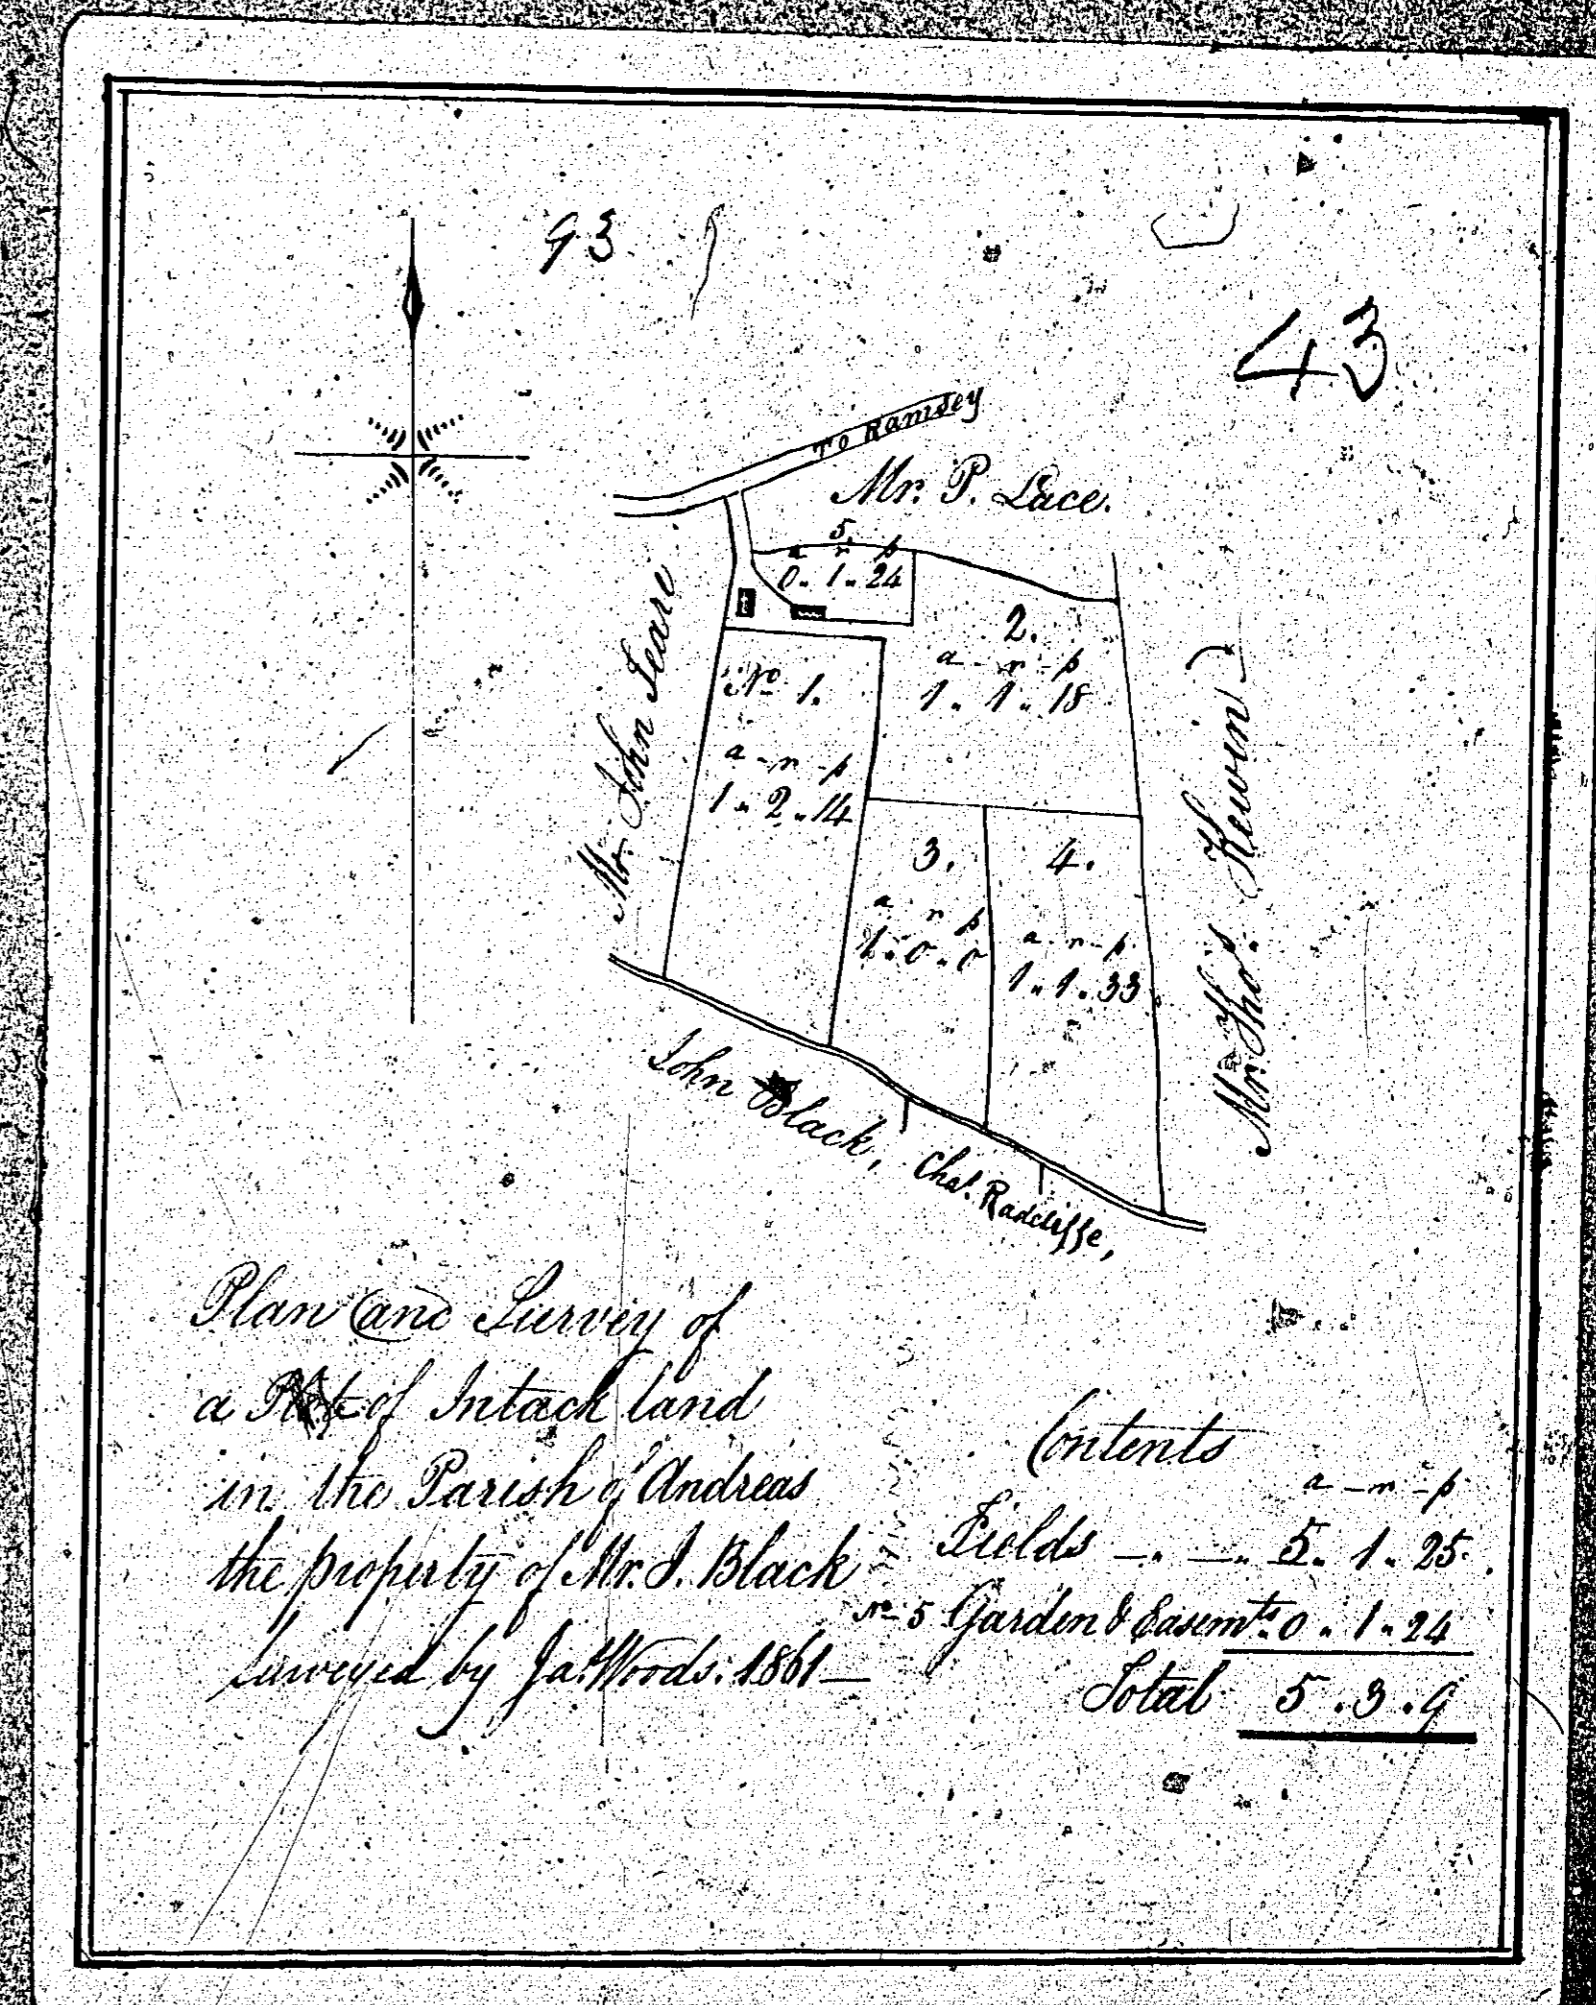 93
43
To Ramsey
Mr. P. Lace.
5.
a r p
0 . 1 . 24
Mr. John Teare
2.
a - r - p
1 . 1 . 18
No 1.
a - r - p
1 . 2 . 14
3.
a r p
1 . 0 . 0
4.
a - r - p
1 . 1 . 33
Mr. Thos. Kewin
John Black,
Chas. Radcliffe,
Plan and Survey of
a Plot of Intack land
in the Parish of Andreas
the property of Mr. J. Black
Surveyed by Jas. Woods: 1861 —
Contents
a - r - p
Fields — . — . 5 . 1 . 25 .
No 5 Garden & Easemts. 0 . 1 . 24
Total 5 . 3 . 9